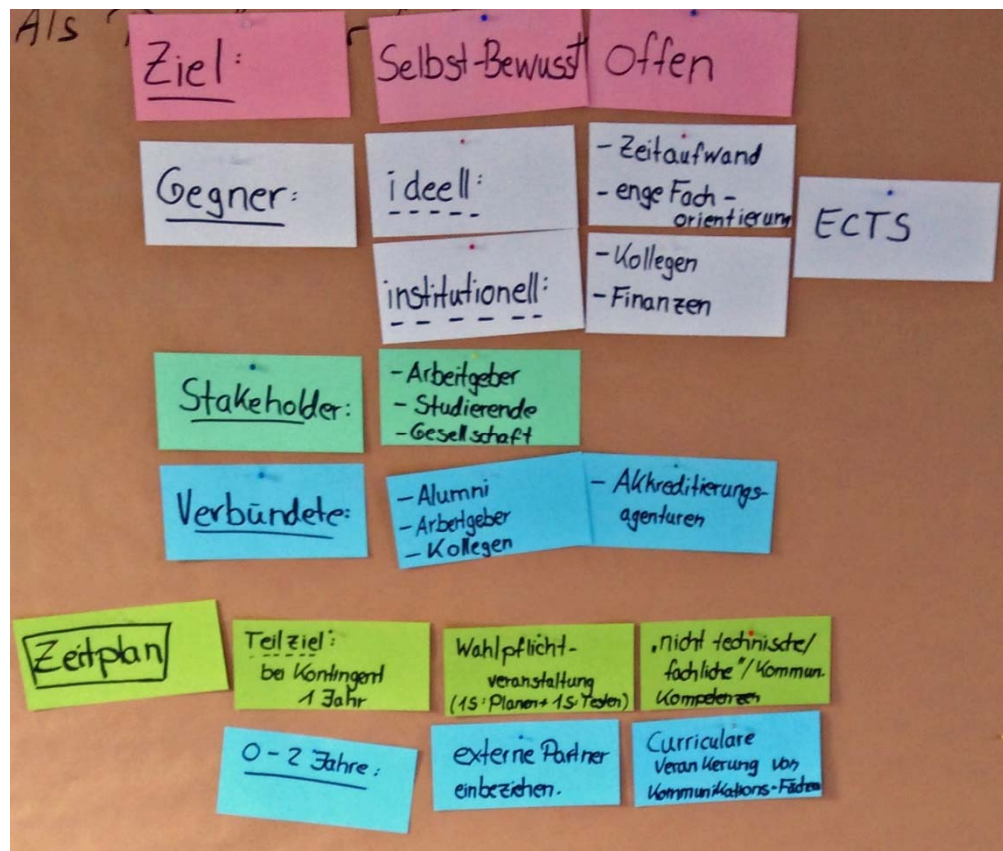 Als
Ziel:
Selbst-Bewusst
Offen
Gegner:
ideell:
- Zeitaufwand
- enge Fach-
orientierung
ECTS
institutionell:
- Kollegen
- Finanzen
Stakeholder:
- Arbeitgeber
- Studierende
- Gesellschaft
Verbündete:
- Alumni
- Arbeitgeber
- Kollegen
- Akkreditierungs-
agenturen
Zeitplan
Teilziel:
bei Kontingent
1 Jahr
Wahlpflicht-
veranstaltung
(1S: Planen + 1S: Testen)
„nicht technische/
fachliche"/Kommun.
Kompetenzen
0-2 Jahre:
externe Partner
einbeziehen.
Curriculare
Verankerung von
Kommunikations-Fächern